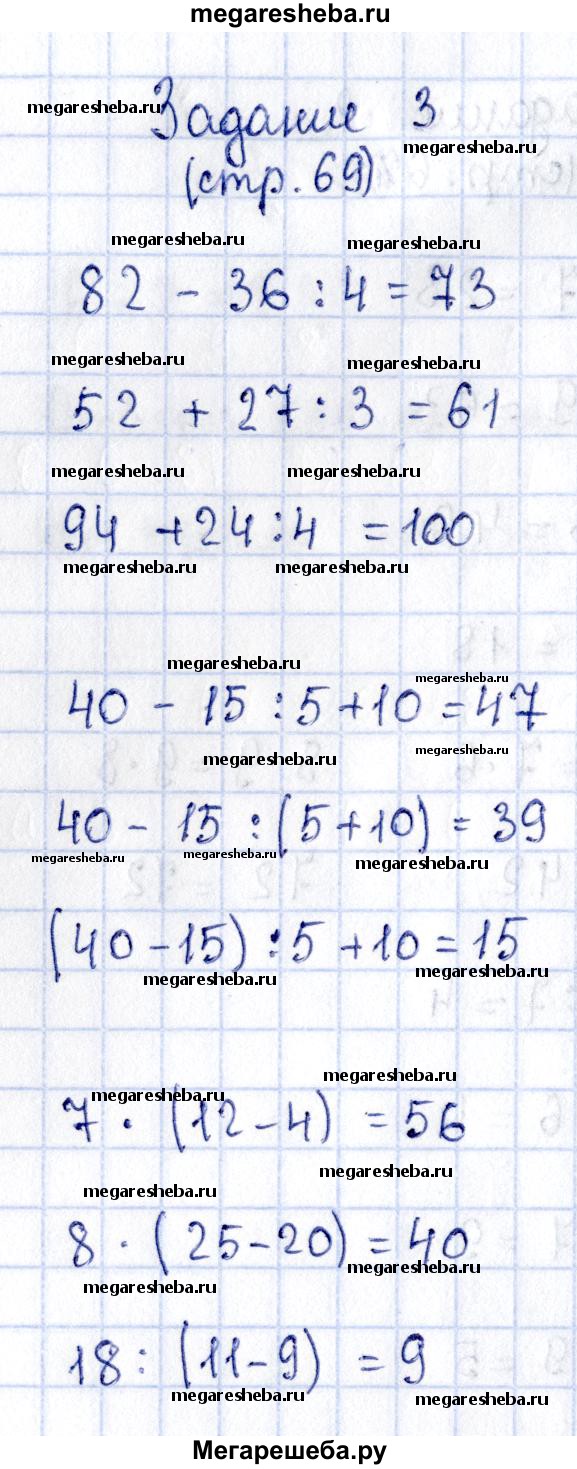 megaresheba.ru
megaresheba.ru
Задание 3
megaresheba.ru
(стр. 69)
megaresheba.ru megaresheba.ru
82 - 36 : 4 = 73
megaresheba.ru megaresheba.ru
52 + 27 : 3 = 61
megaresheba.ru megaresheba.ru
94 + 24 : 4 = 100
megaresheba.ru megaresheba.ru
megaresheba.ru megaresheba.ru
40 - 15 : 5 + 10 = 47
megaresheba.ru megaresheba.ru
40 - 15 : (5 + 10) = 39
megaresheba.ru megaresheba.ru megaresheba.ru
(40 - 15) : 5 + 10 = 15
megaresheba.ru megaresheba.ru
megaresheba.ru megaresheba.ru
7 · (12 - 4) = 56
megaresheba.ru megaresheba.ru
8 · (25 - 20) = 40
megaresheba.ru megaresheba.ru
18 : (11 - 9) = 9
megaresheba.ru megaresheba.ru
Мегарешеба.ру